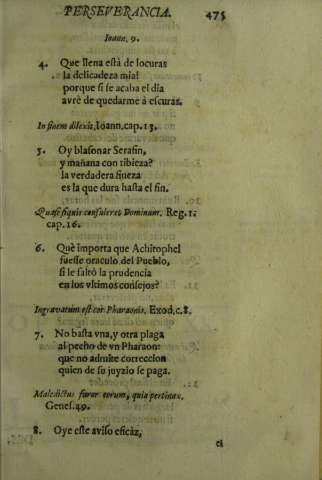 PERSEVERANCIA. 475
Ioann. 9.
4. Que llena està de locuras
la delicadeza mia!
porque si se acaba el dia
avrè de quedarme à escuras.
In finem dilexit, Ioann. cap. 13.
5. Oy blasonar Serafin,
y mañana con tibieza?
la verdadera fineza
es la que dura hasta el fin.
Quasi siquis consuleret Dominum. Reg. 1.
cap. 16.
6. Què importa que Achitophel
fuesse oraculo del Pueblo,
si le faltò la prudencia
en los vltimos consejos?
Ingravatum est cor Pharaonis. Exod. c. 8.
7. No basta vna, y otra plaga
al pecho de vn Pharaon:
que no admite correccion
quien de su juyzio se paga.
Maledictus furor eorum, quia pertinax.
Genes. 49.
8. Oye este aviso eficàz,